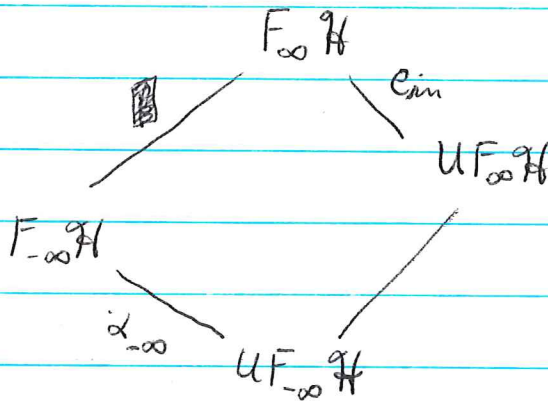 F∞ ℋ
e_in
U F∞ ℋ
F_-∞ ℋ
α_-∞
U F_-∞ ℋ